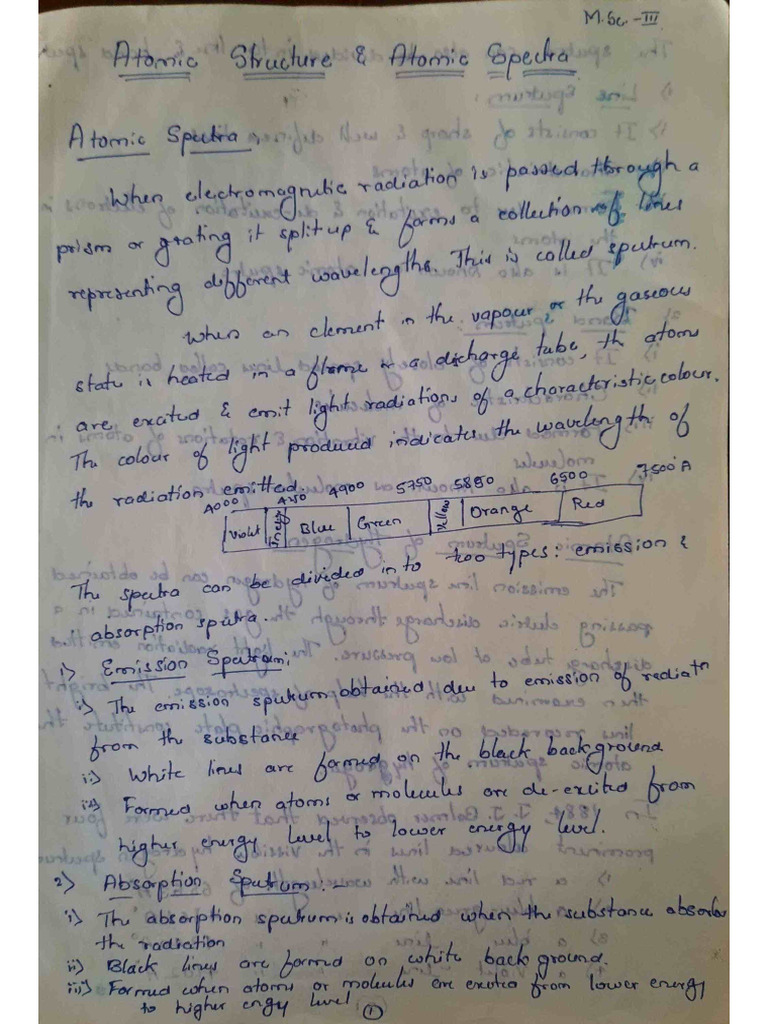 M.Sc.-III
Atomic Structure & Atomic Spectra
Atomic Spectra,
When electromagnetic radiation is passed through a
prism or grating it split up & forms a collection of lines
representing different wavelengths. This is called spectrum.
When an element in the vapour or the gaseous
state is heated in a flame or a discharge tube, the atoms
are excited & emit light radiations of a characteristic colour.
The colour of light produced indicates the wavelength of
the radiation emitted.
4000 4250 4900 5750 5850 6500 7500°A
Violet Indigo Blue Green Yellow Orange Red
The spectra can be divided in to two types: emission &
absorption spectra.
1) Emission Spectrum;
i) The emission spectrum obtained due to emission of radiatn
from the substance
ii) White lines are formed on the black background
iii) Formed when atoms or molecules are de-exited from
higher energy level to lower energy level.
2) Absorption Spectrum:-
i) The absorption spectrum is obtained when the substance absorbs
the radiation
ii) Black lines are formed on white back ground.
iii) Formed when atoms or molecules are excited from lower energy
to higher engy level
1